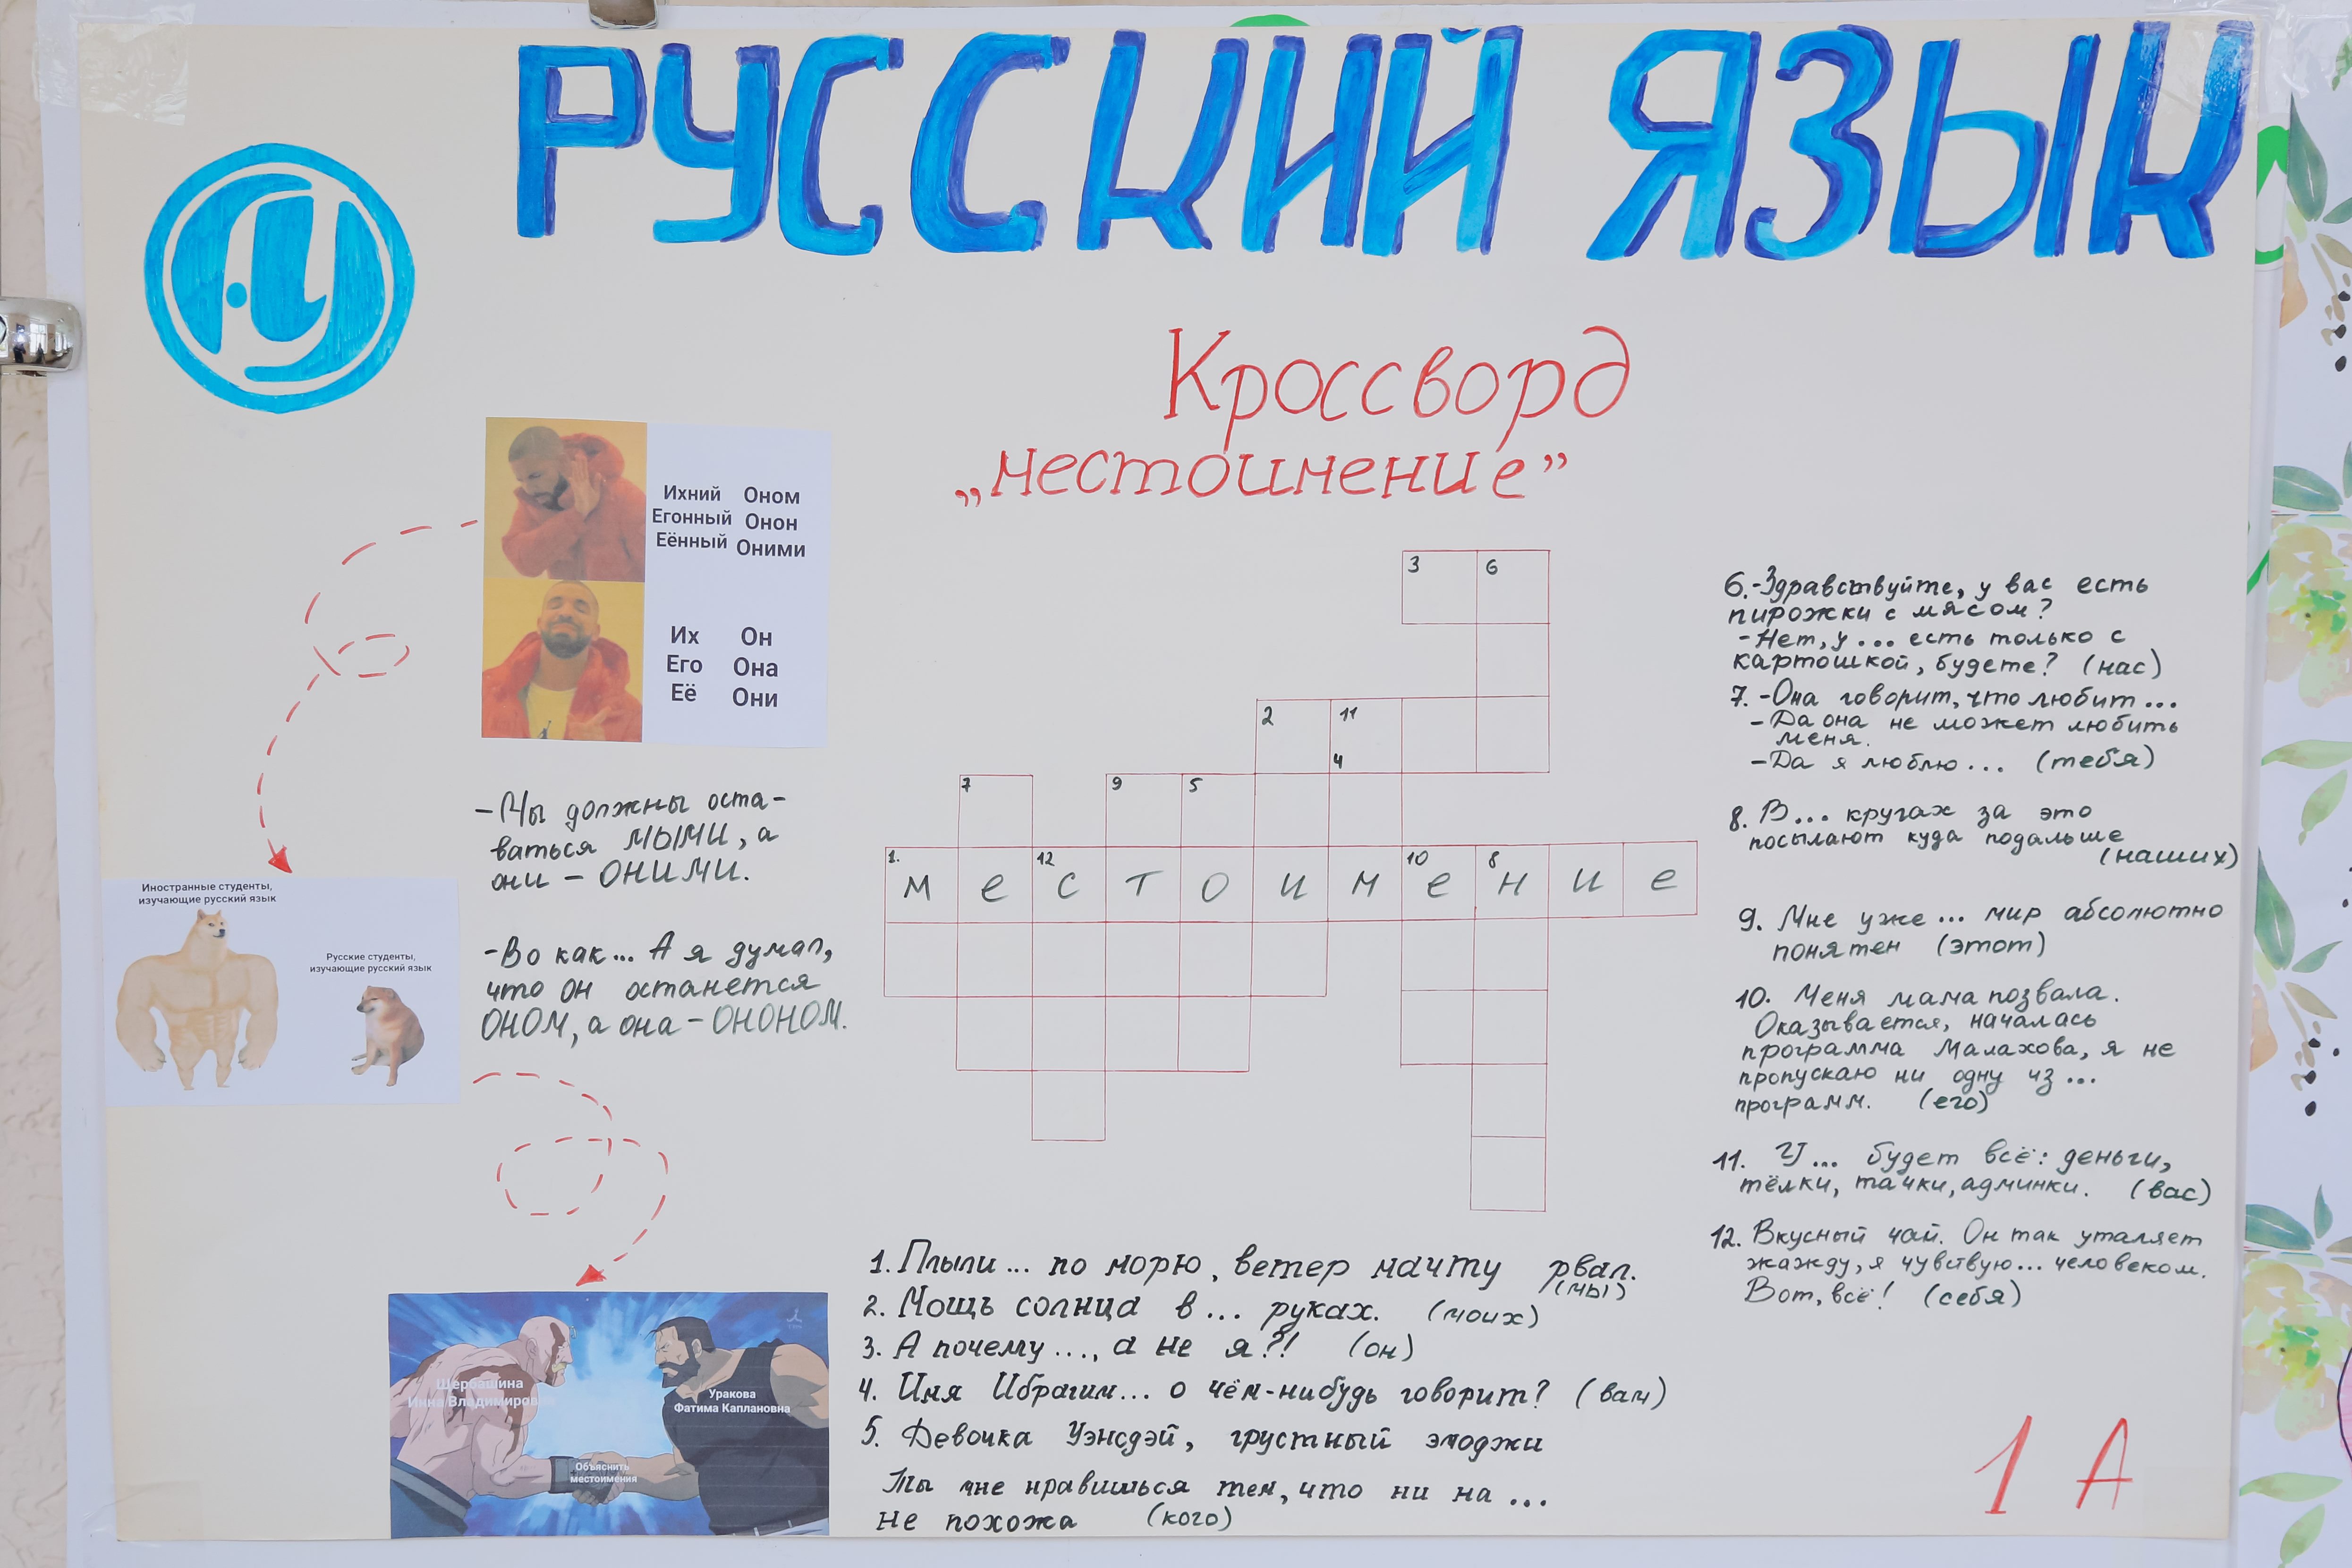 РУССКИЙ ЯЗЫК
Кроссворд
„местоимение”
Ихний Оном
Егонный Онон
Её́нный Оними
Их Он
Его Она
Её Они
-Мы должны оста-
ваться МЫМИ, а
они - ОНИМИ.
-Во как... А я думал,
что он останется
ОНОМ, а она - ОНОНОМ.
Иностранные студенты,
изучающие русский язык
Русские студенты,
изучающие русский язык
Щербашина
Инна Владимировна
Уракова
Фатима Каплановна
Объяснить
местоимения
3 6
2 11
4
7 9 5
1. 12 10 8
м е с т о и м е н и е
1. Плыли... по морю, ветер мачту рвал.
(мы)
2. Мощь солнца в... руках. (моих)
3. А почему..., а не я?! (он)
4. Имя Ибрагим... о чём-нибудь говорит? (вам)
5. Девочка Уэнсдэй, грустный эмоджи
Ты мне нравишься тем, что ни на ...
не похожа (кого)
6.-Здравствуйте, у вас есть
пирожки с мясом?
-Нет, у... есть только с
картошкой, будете? (нас)
7. -Она говорит, что любит...
-Да она не может любить
меня.
-Да я люблю... (тебя)
8. В... кругах за это
посылают куда подальше
(наших)
9. Мне уже... мир абсолютно
понятен (этот)
10. Меня мама позвала.
Оказывается, началась
программа Малахова, я не
пропускаю ни одну из...
программ. (его)
11. У... будет всё: деньги,
тёлки, тачки, админки. (вас)
12. Вкусный чай. Он так уталяет
жажду, я чувствую... человеком.
Вот, всё! (себя)
1 А